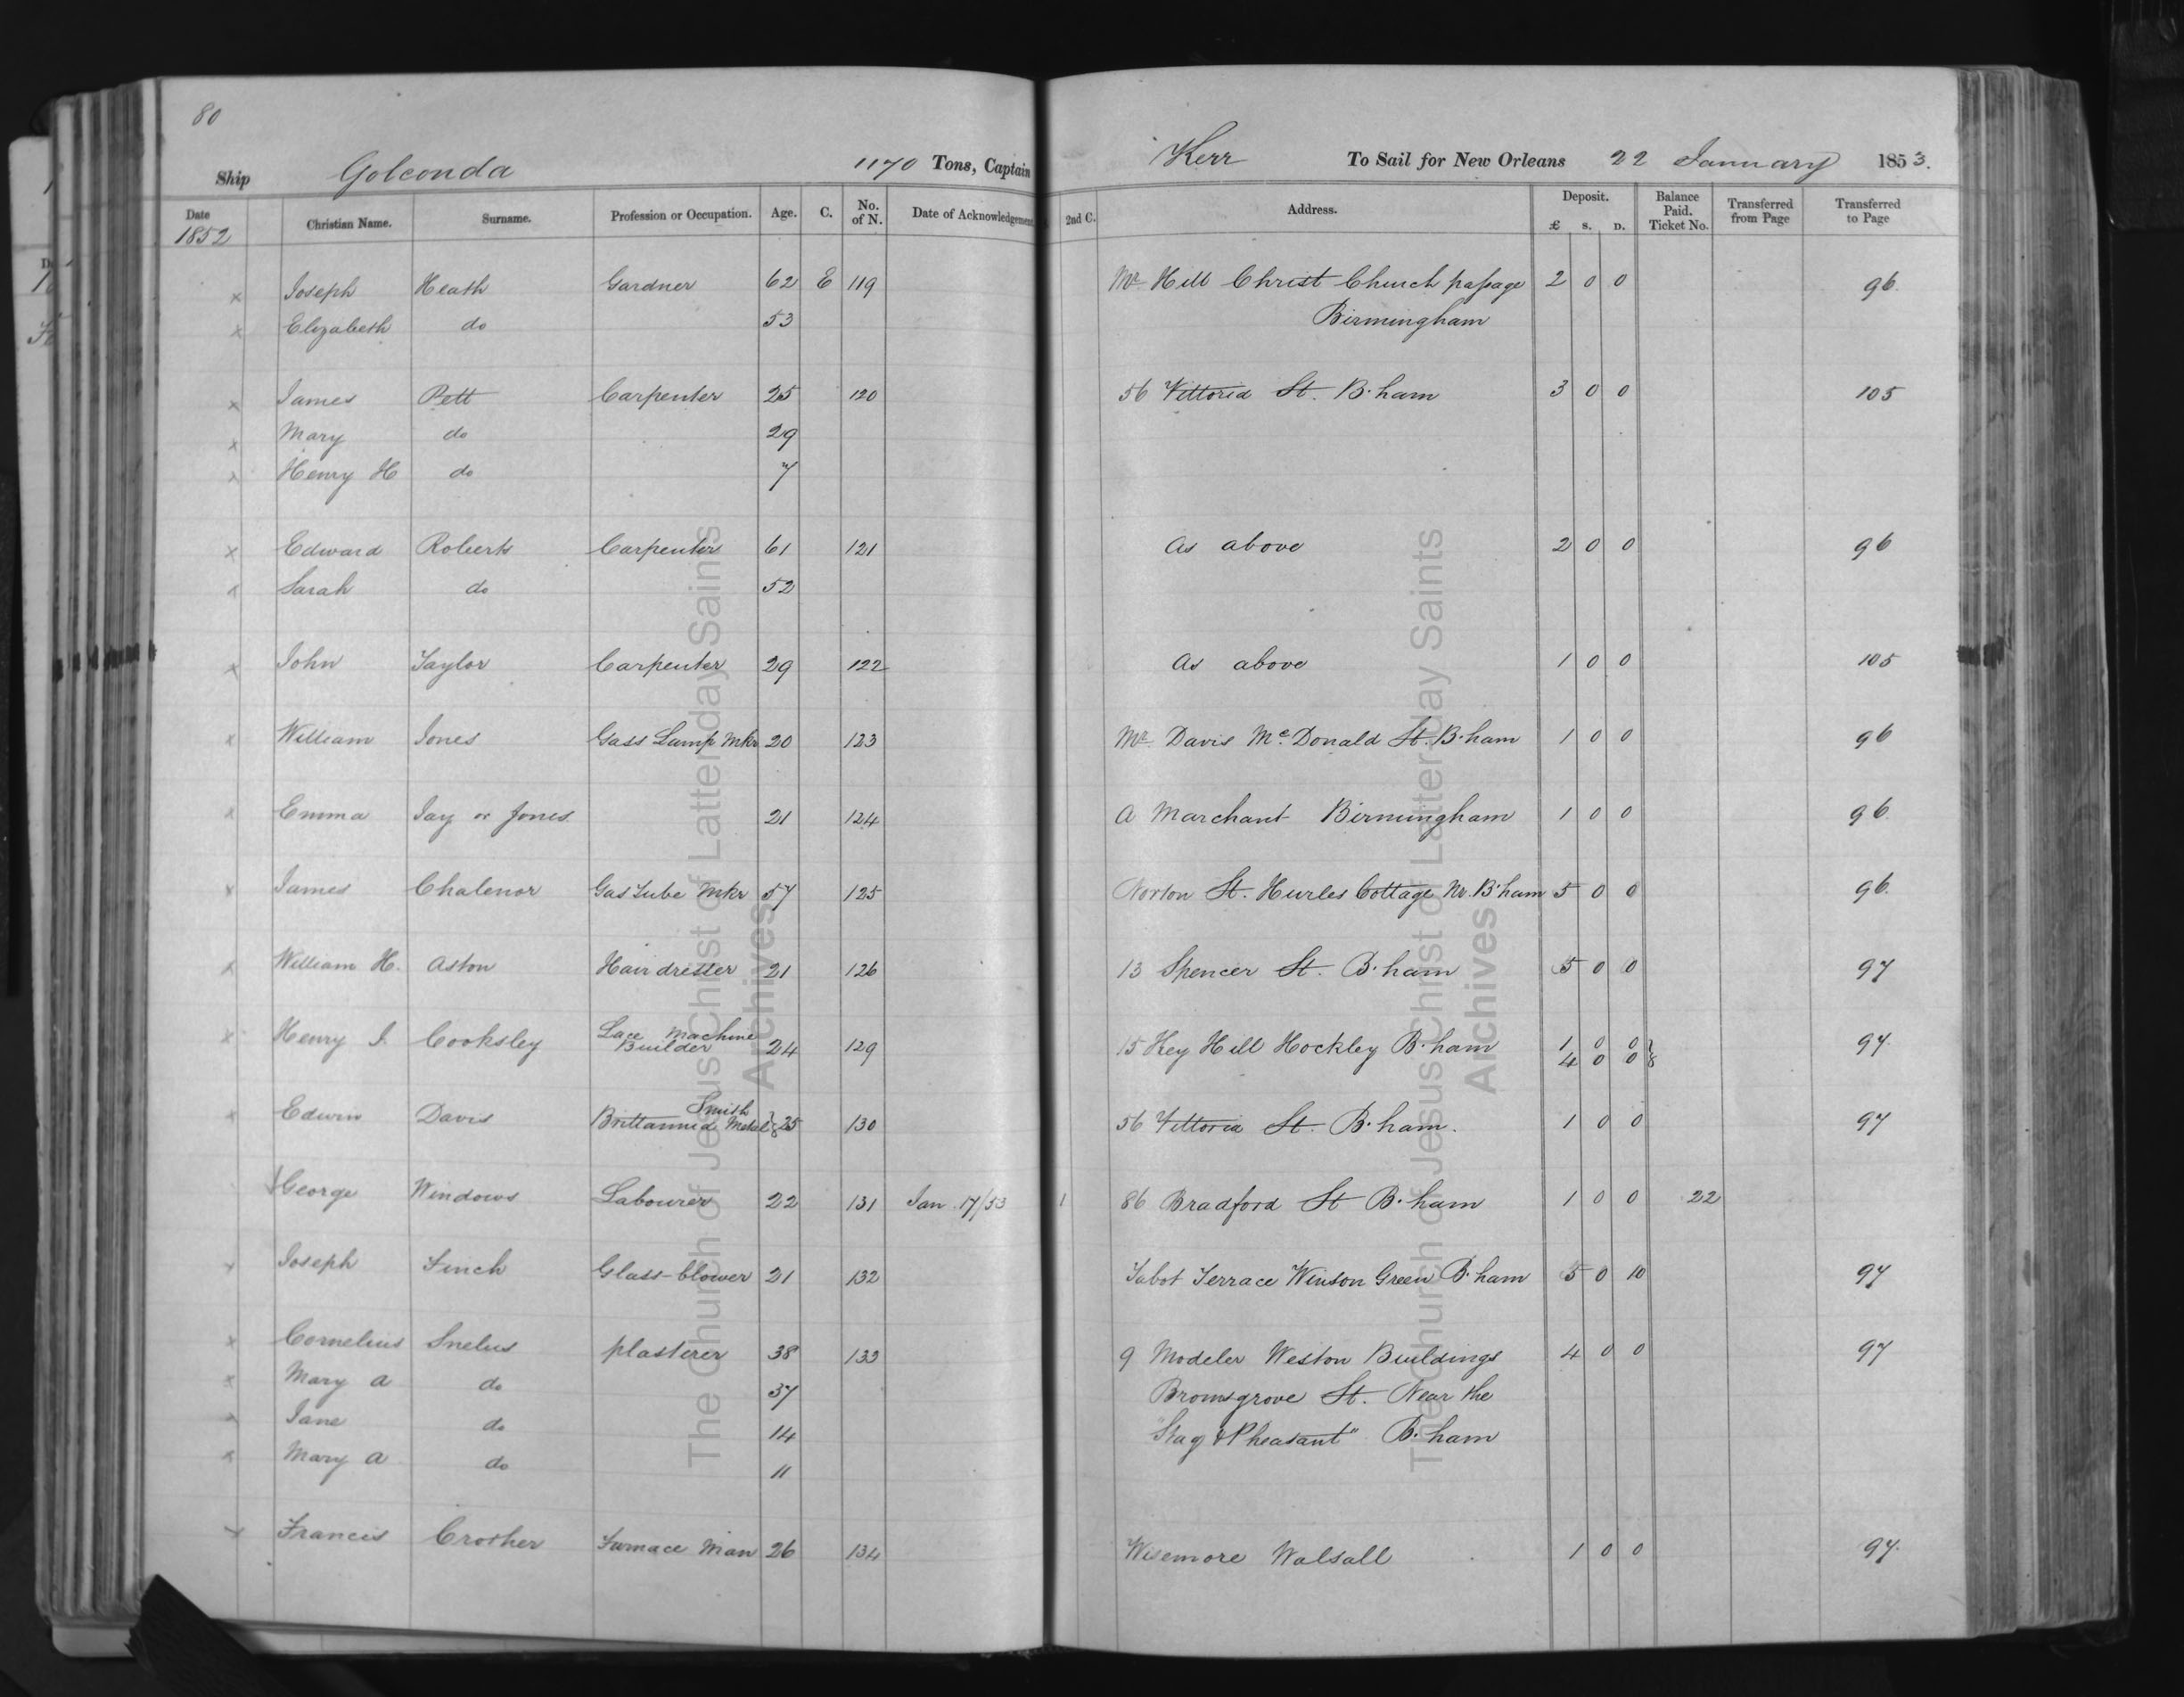 80
Ship Golconda 1170 Tons, Captain Kerr To Sail for New Orleans 22 January 1853.
Date 1852 Christian Name. Surname. Profession or Occupation. Age. C. No. of N. Date of Acknowledgement 2nd C. Address. Deposit. £ S. D. Balance Paid. Ticket No. Transferred from Page Transferred to Page
x Joseph Heath Gardner 62 E 119 Mr Hill Christ Church passage 2 0 0 96
x Elizabeth do 53 Birmingham
x James Pett Carpenter 25 120 56 Vittoria St. B.ham 3 0 0 105
x Mary do 29
x Henry H do 7
x Edward Roberts Carpenter 61 121 As above 2 0 0 96
x Sarah do 52
x John Taylor Carpenter 29 122 As above 1 0 0 105
x William Jones Gass Lamp Mkr 20 123 Mr Davis Mc.Donald St. B.ham 1 0 0 96
x Emma Jay or Jones 21 124 A Marchant Birmingham 1 0 0 96
x James Chalenor Gas Tube Mkr 57 125 Norton St. Hurles Cottage Nr. B'ham 5 0 0 96
x William H. Aston Hair dresser 21 126 13 Spencer St. B.ham 5 0 0 97
x Henry J. Cooksley Lace Machine Builder 24 129 15 Key Hill Hockley B.ham 1 0 0 97
4 0 0
x Edwin Davis Brittannia Metal Smith 25 130 56 Vittoria St. B.ham. 1 0 0 97
George Windows Labourer 22 131 Jan. 17/53 1 86 Bradford St B.ham 1 0 0 22
x Joseph Finch Glass-blower 21 132 Tabot Terrace Winson Green B.ham 5 0 10 97
x Cornelius Snelus plasterer 38 133 9 Modeler Weston Buildings 4 0 0 97
x Mary A do 37 Bromsgrove St. Near the
x Jane do 14 "Stag & Pheasant" B.ham
x Mary A do 11
x Francis Crother Furnace Man 26 134 Wisemore Walsall 1 0 0 97
The Church of Jesus Christ of Latter-day Saints
Archives
The Church of Jesus Christ of Latter-day Saints
Archives